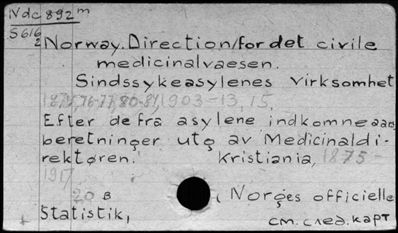 Ndc 892m
S616
2
Norway. Direction for det civile
medicinalvaesen.
Sindssykeasylenes virksomhet
1874,76-77,80-81,1903-13,15.
Efter de fra asylene indkomne aars
beretninger utg av Medicinaldi-
rektøren. Kristiania, 1875-
1917
20 в (Norges officielle
Statistik,
см. след. карт